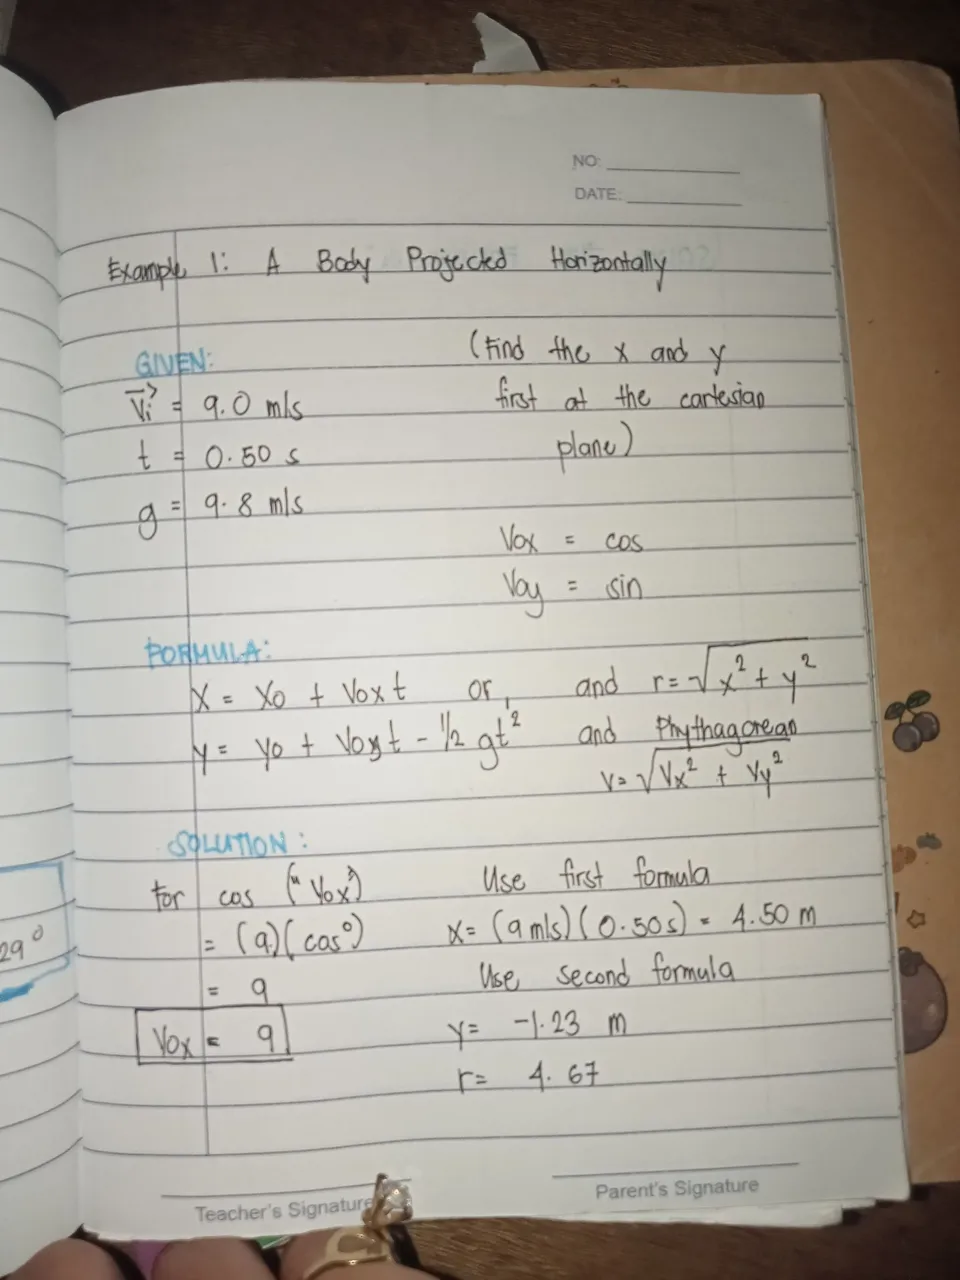 NO:
DATE:
Example 1: A Body Projected Horizontally
GIVEN:
Vi = 9.0 m/s
t = 0.50 s
g = 9.8 m/s
(Find the x and y
first at the cartesian
plane)
Vox = cos
Voy = sin
FORMULA:
X = Xo + Voxt or, and r = √x² + y²
y = yo + Voyt - 1/2 gt² and Phythagorean
V = √Vx² + Vy²
SOLUTION:
For cos ("Vox")
= (9)(cos⁰)
= 9
Vox = 9
Use first formula
X = (9 m/s)(0.50s) = 4.50 m
Use second formula
y = -1.23 m
r = 4.67
29⁰
Teacher's Signature
Parent's Signature